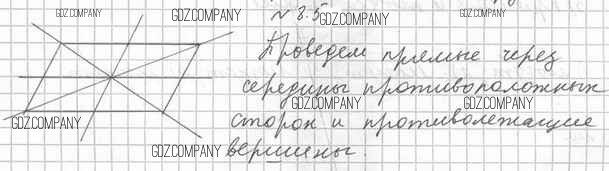 GDZ.COMPANY GDZ.COMPANY № 8.5 GDZ.COMPANY GDZ.COMPANY
Проведем прямые через
середины противоположных
GDZ.COMPANY GDZ.COMPANY
сторон и противолежащие
GDZ.COMPANY
GDZ.COMPANY вершины.